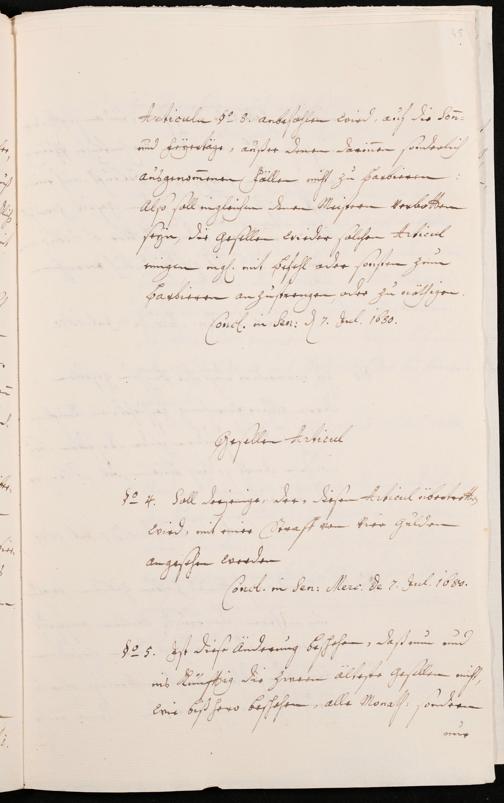 45
Articuln §o 3. anbefohlen wird, auf die Soñ-
und Feyertäge, ausser denen darinnen sonderlich
ausgenommenen Fällen nicht zu barbieren:
Also soll ingleichen denen Meistern verbotten
seyn, die Gesellen wieder solchen Articul
einigen mit Befehl oder sonsten zum
barbieren anzustrengen oder zu nöthigen.
Concl. in Sen: d 7. Jul. 1680.
Gesellen Articul
§o 4. Soll derjenige, der, diesen Articul übertretten
wird, mit einer Straff von vier Gulden
angesehen werden
Concl. in Sen: Merc. de 7. Jul. 1680.
§o 5. Ist diese Änderung beschehen, daß nun und
ins Künfftig die zween älteste Gesellen nicht,
wie bißhero beschehen, alle Monath sondern
nur